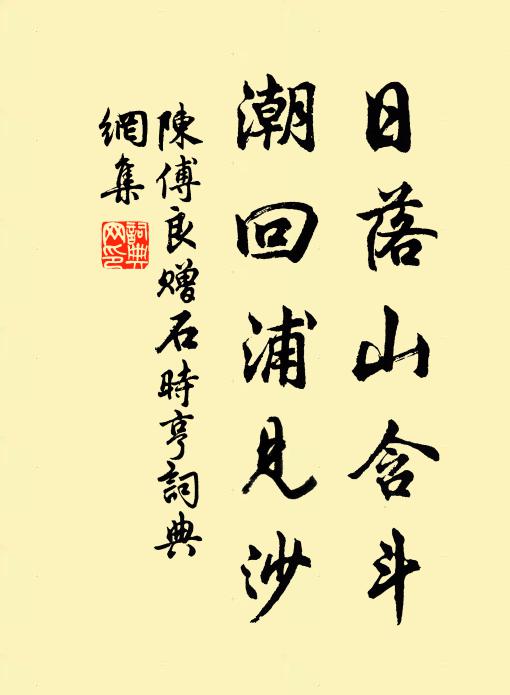 日落山含斗
潮回浦見沙
陳傅良贈石時亨詞典
網集
詞典
网印